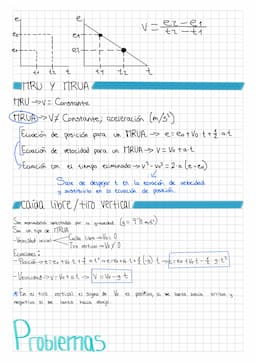 e
e
e2
e1
t1 t2 t
e1
e2
t1 t2 t
V = e2 - e1 / t2 - t1
MRU Y MRUA
MRU → V = Constante
MRUA → V ≠ Constante, aceleración (m/s²)
Ecuación de posición para un MRUA → e = e0 + V0 t + ½ a t²
Ecuación de velocidad para un MRUA → V = V0 + a t
Ecuación con el tiempo eliminado → V² - V0² = 2·a (e - e0)
Sale de despejar t en la ecuación de velocidad
y sustituirlo en la ecuación de posición.
Caída libre / tiro vertical
Son movimientos ... por la gravedad (g = 9'8 m/s²)
Son un tipo de MRUA
- Velocidad inicial
Caída libre → V0 = 0
Tiro vertical → V0 ≠ 0
Ecuaciones:
- Posición → e = e0 + V0 t + ½ a t² → e = e0 + V0 t + ½ (-g) t² → e = e0 + V0 t - ½ g t²
- Velocidad → V = V0 + a t → V = V0 - g t
* En el tiro vertical el signo de V0 es positivo, si se lanza hacia arriba y
negativo si se lanza hacia abajo.
Problemas